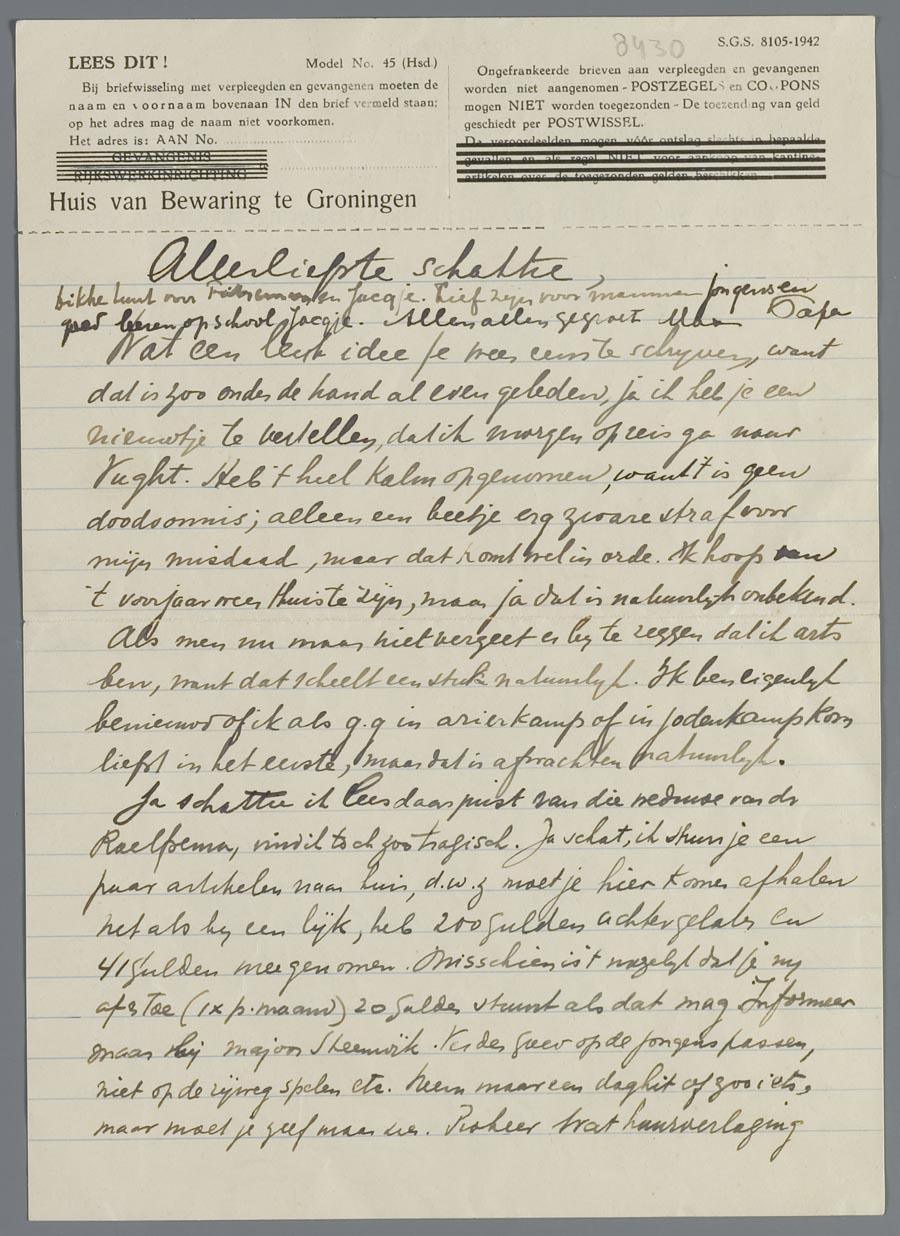 8430
S.G.S. 8105-1942
LEES DIT!
Model No. 45 (Hsd.)
Bij briefwisseling met verpleegden en gevangenen moeten de
naam en voornaam bovenaan IN den brief vermeld staan;
op het adres mag de naam niet voorkomen.
Het adres is: AAN No.
GEVANGENIS
RIJKSWERKINRICHTING
Huis van Bewaring te Groningen
Ongefrankeerde brieven aan verpleegden en gevangenen
worden niet aangenomen - POSTZEGELS en COUPONS
mogen NIET worden toegezonden - De toezending van geld
geschiedt per POSTWISSEL.
De veroordeelden mogen vóór ontslag slechts in bepaalde
gevallen en als regel NIET voor aankoop van kantine-
artikelen over de toegezonden gelden beschikken.
Allerliefste schattie,
dikke voor en Jacqje. Lief zijn voor mamma jongens en
goed leeren op school Jacqje. Allen allen gegroet Papa
Wat een leuk idee je weer eens te schrijven, want
dat is zoo onder de hand al even geleden, ja ik heb je een
nieuwtje te vertellen, dat ik morgen op reis ga naar
Vught. Heb 't heel kalm opgenomen, want 't is geen
doodvonnis; alleen een beetje erg zware straf voor
mijn misdaad, maar dat komt wel in orde. Ik hoop van
't voorjaar weer thuis te zijn, maar ja dat is natuurlijk onbekend.
Als men nu maar niet vergeet er bij te zeggen dat ik arts
ben, want dat scheelt een stuk natuurlijk. Ik ben eigenlijk
benieuwd of ik als g.g in arierkamp of in jodenkamp kom
liefst in het eerste, maar dat is afwachten natuurlijk.
Ja schattie ik lees daar juist van die weduwe van dr
Roelfsema, vind ik toch zoo tragisch. Ja schat, ik stuur je een
paar artikelen naar huis, d.w.z moet je hier komen afhalen
net als bij een lijk, heb 200 gulden achtergelaten en
41 gulden meegenomen. Misschien is 't mogelijk dat je mij
af en toe (1x p. maand) 20 gulden stuurt als dat mag Informeer
maar bij majoor Steenwijk. Verder goed op de jongens passen,
niet op de rijweg spelen etc. Neem maar een daghit of zoo iets,
maar moet je zelf maar zien. Probeer wat huurverlaging